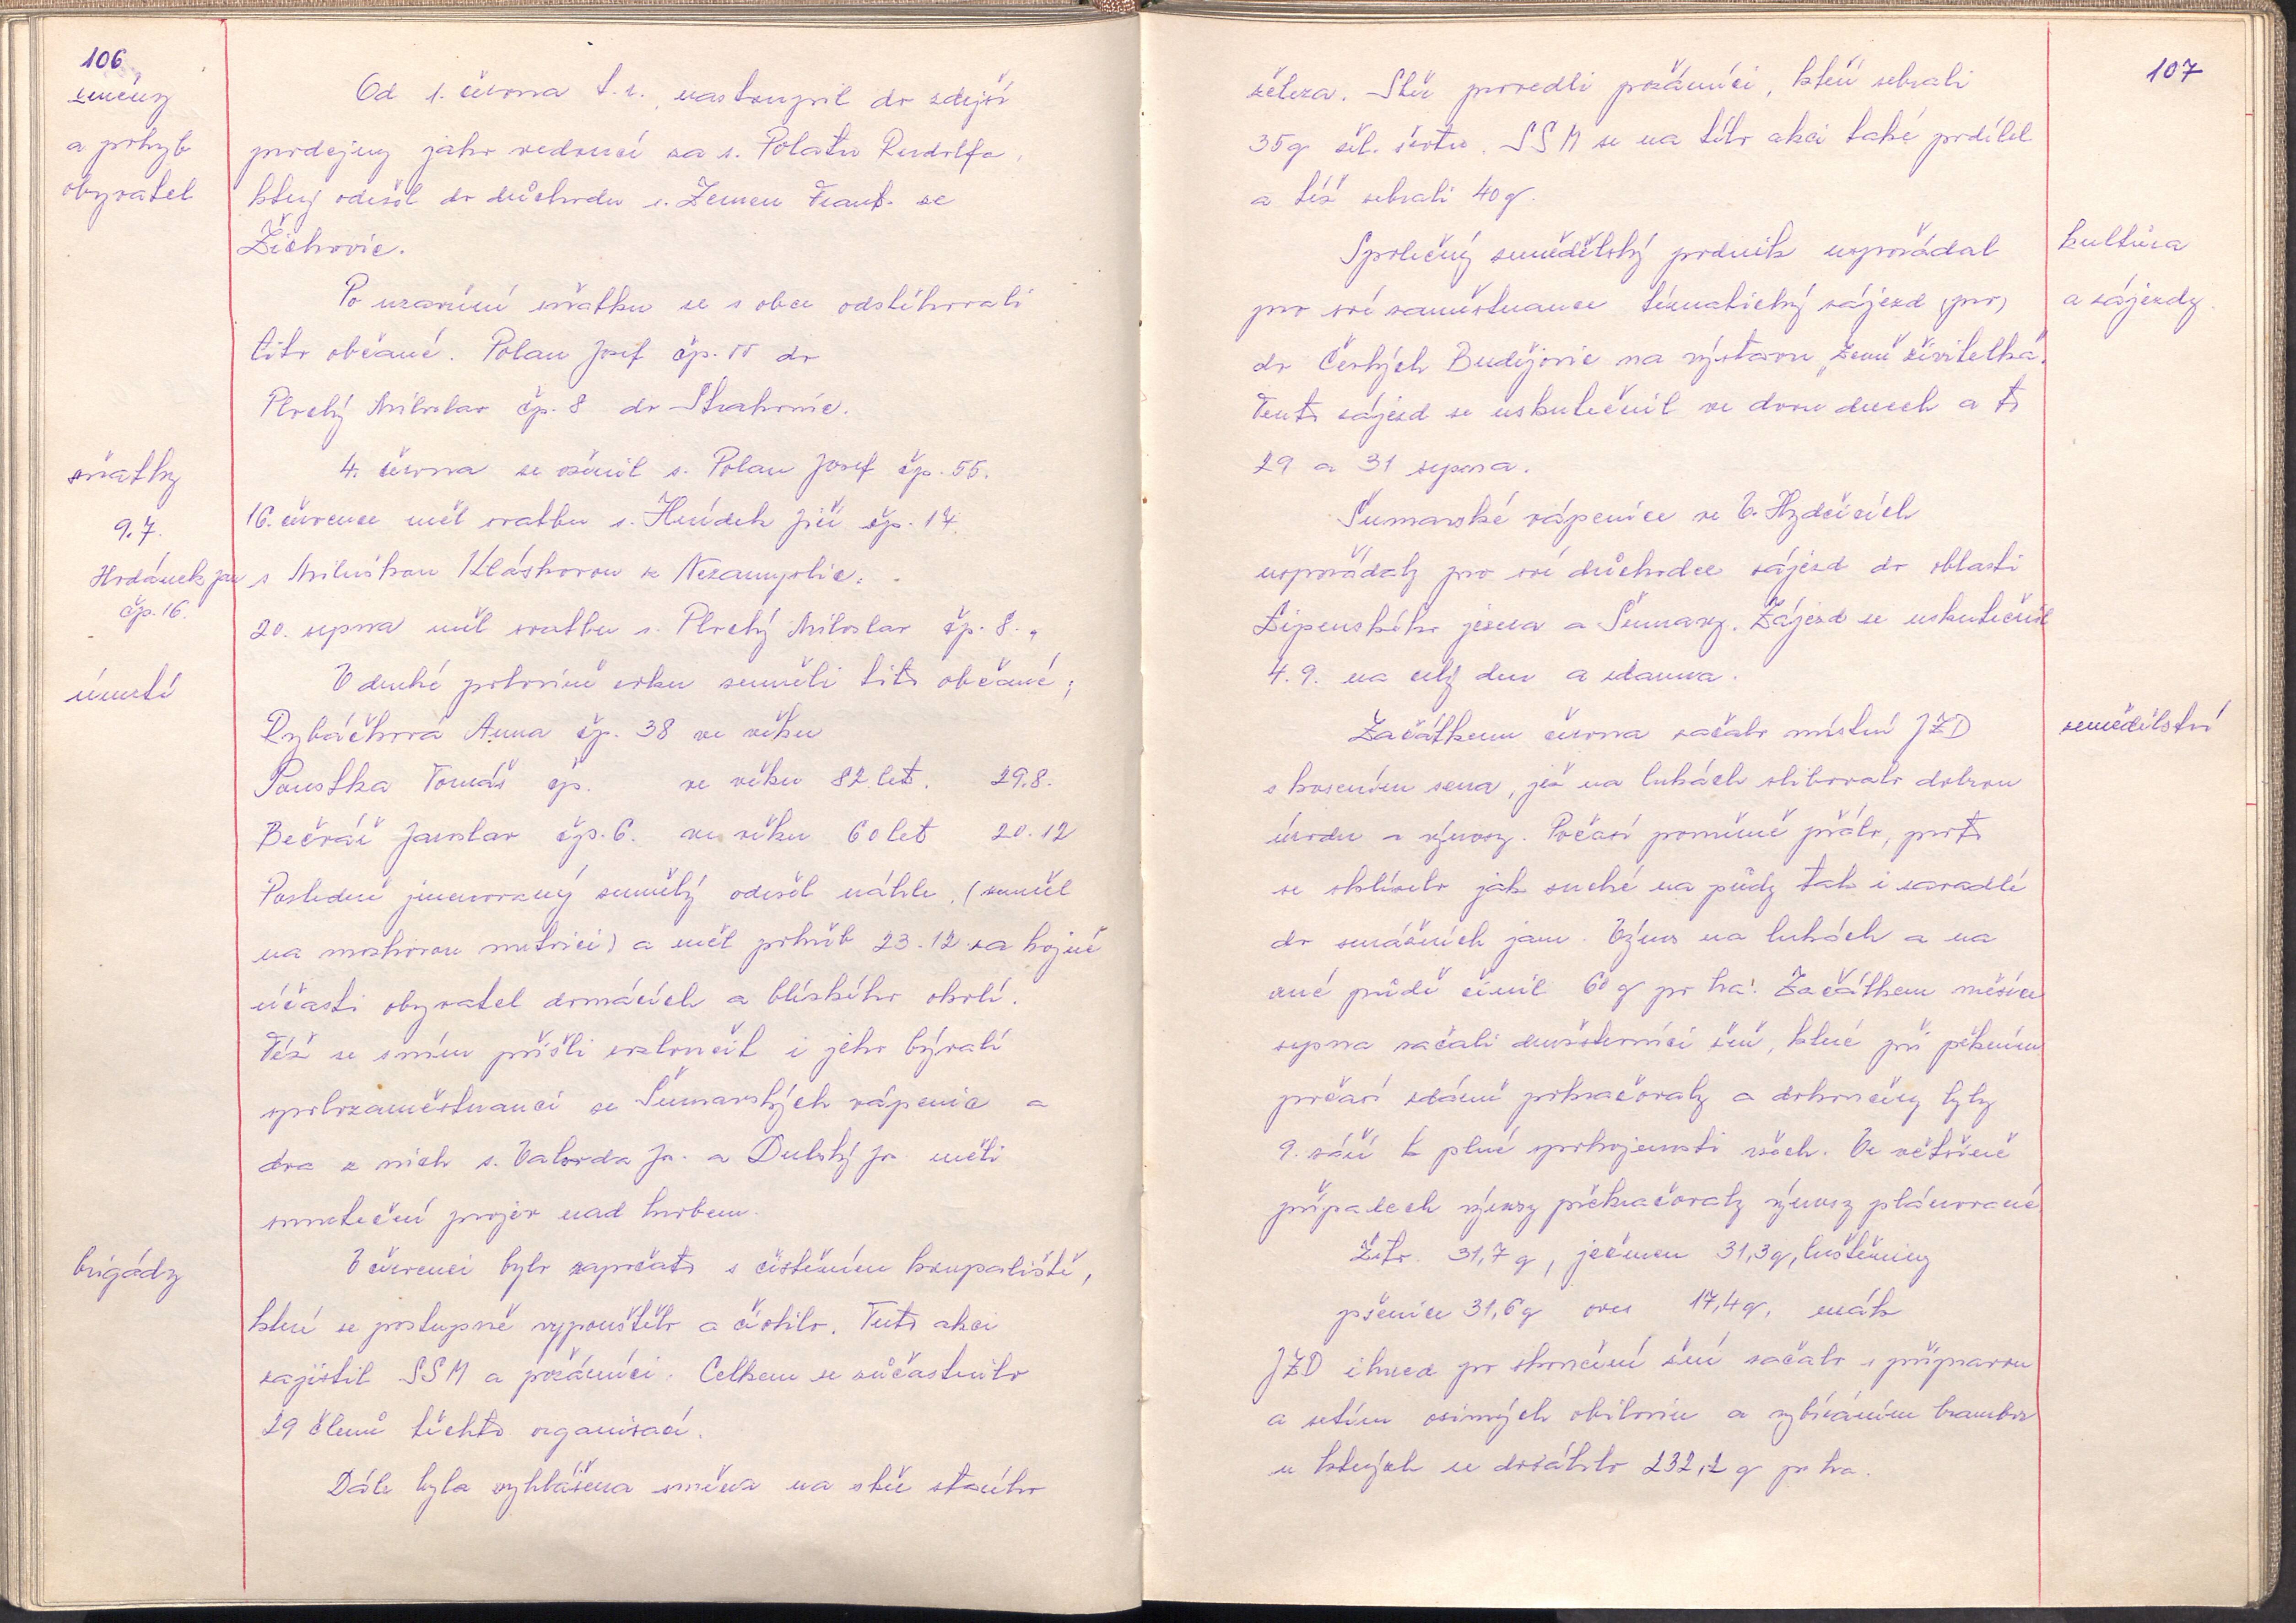 106
změny
a pohyb
obyvatel
Od 1. června t.r. nastoupil do zdejší
prodejny jako vedoucí za s. Polatu Rudolfa,
který odešel do důchodu s. Zemen Frant. ze
Žichovic.
Po uzavření sňatku se z obce odstěhovali
tito občané. Polan Josef čp. 55 do
Plochý Miloslav čp. 8 do Strakonic.
sňatky
4. června se oženil s. Polan Josef čp. 55.
9.7.
Hrdánek Jan
čp. 16.
16. července měl svatbu s. Jiří čp. 14.
s Miluškou Kláskovou z Nezamyslic.
20. srpna měl svatbu s. Plochý Miloslav čp. 8.
úmrtí
V druhé polovině roku zemřeli tito občané;
Rybáčková Anna čp. 38 ve věku
Poustka Tomáš čp. ve věku 82 let. 29.8.
Bečvář Jaroslav čp. 6. ve věku 60 let 20.12
Posledně jmenovaný zemřelý odešel náhle. (zemřel
na mozkovou mrtvici) a měl pohřeb 23.12 za hojné
účasti obyvatel domácích a blízkého okolí.
Též se s ním přišli rozloučit i jeho bývalí
spoluzaměstnanci ze Šumavských vápenic a
dva z nich s. Valvoda Ja. a Dulský Ja. měli
smuteční projev nad hrobem.
brigády
V červenci bylo započato s čistěním koupaliště,
které se postupně vypouštělo a čistilo. Tuto akci
zajistil SSM a požárníci. Celkem se zúčastnilo
29 členů těchto organisací.
Dále byla vyhlášena směna na sběr starého
107
železa. Sběr provedli požárníci, kteří sebrali
35q žel. šrotu. SSM se na této akci také podílel
a též sebrali 40q.
kultura
a zájezdy.
Společný zemědělský podnik uspořádal
pro své zaměstnance tématický zájezd (pro)
do Českých Budějovic na výstavu „Země živitelka".
Tento zájezd se uskutečnil ve dvou dnech a to
29 a 31 srpna.
Šumavské vápenice ve V. Hydčicích
uspořádaly pro své důchodce zájezd do oblasti
Lipenského jezera a Šumavy. Zájezd se uskutečnil
4.9. na celý den a zdarma.
zemědělství
Začátkem června začalo místní JZD
s kosením sena, jež na lukách slibovalo dobrou
úrodu a výnosy. Počasí poměrně přálo, proto
se sklízelo jak suché na půdy tak i zavadlé
do senážních jam. Výnos na lukách a na
orné půdě činil 60 q po ha. Začátkem měsíce
srpna začali družstevníci žně, které při pěkném
počasí zdárně pokračovaly a dokončeny byly
9. září k plné spokojenosti všech. Ve většině
případech výnosy překračovaly výnosy plánované
Žito. 31,7 q, ječmen 31,3q, luštěniny
pšenice 31,6q oves 17,4q, mák
JZD ihned po skončení žní začalo s přípravou
a setím ozimých obilovin a vybíráním brambor
u kterých se dosáhlo 232,2 q po ha.